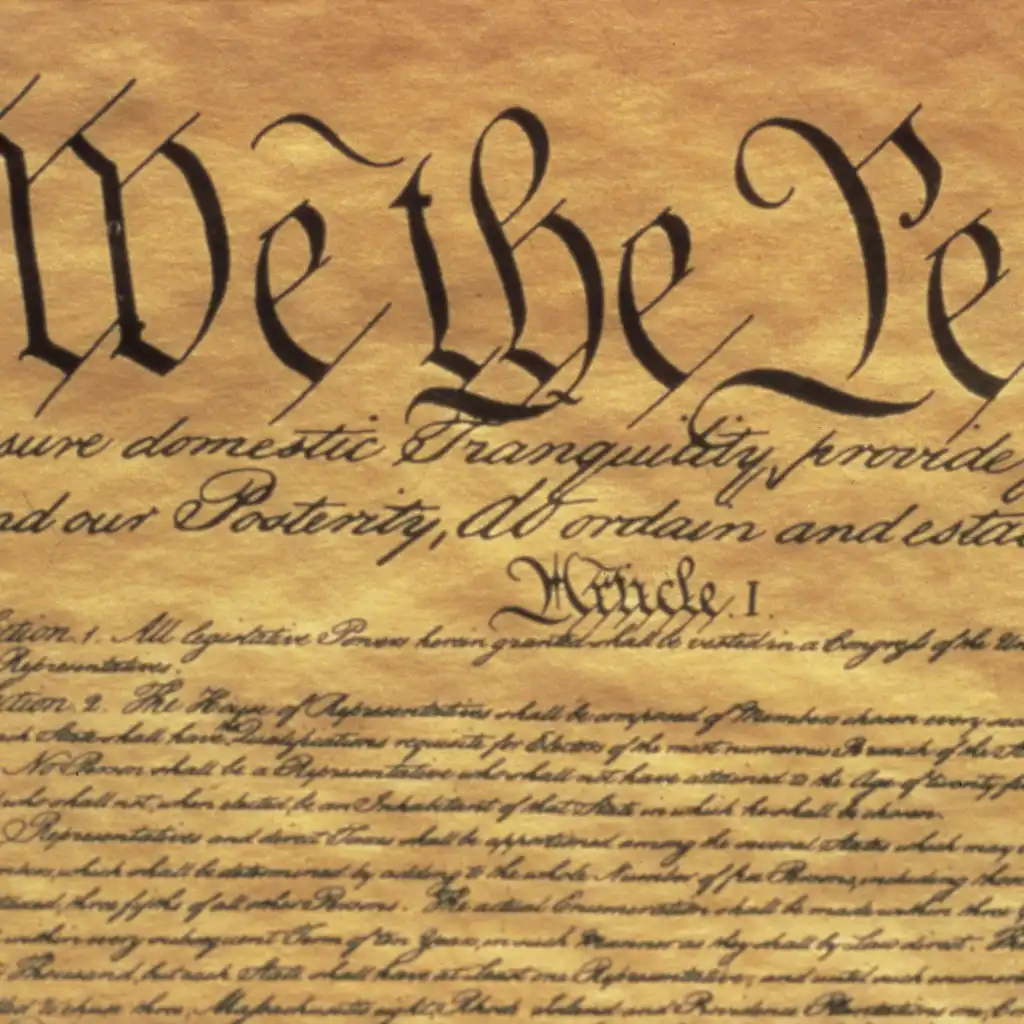 We the Pe
sure domestic Tranquility, provide
nd our Posterity, do ordain and esta
Article. I.
ction. 1. All legislative Powers herein granted shall be vested in a Congress of the Un
Representatives.
ction. 2. The House of Representatives shall be composed of Members chosen every
ach State shall have the Qualifications requisite for Electors of the most numerous Branch of the St
No Person shall be a Representative who shall not have attained to the Age of twenty
who shall not, when elected, be an Inhabitant of that State in which he shall be chosen.
Representatives and direct Taxes shall be apportioned among the several States which may
which shall be determined by adding to the whole Number of free Persons, including those
three fifths of all other Persons. The actual Enumeration shall be made within three
within every subsequent Term of ten Years, in such Manner as they shall by Law direct. The
Thousand, but each State shall have at Least one Representative; and until such enumer
to chuse three, Massachusetts eight, Rhode Island and Providence Plantations one,